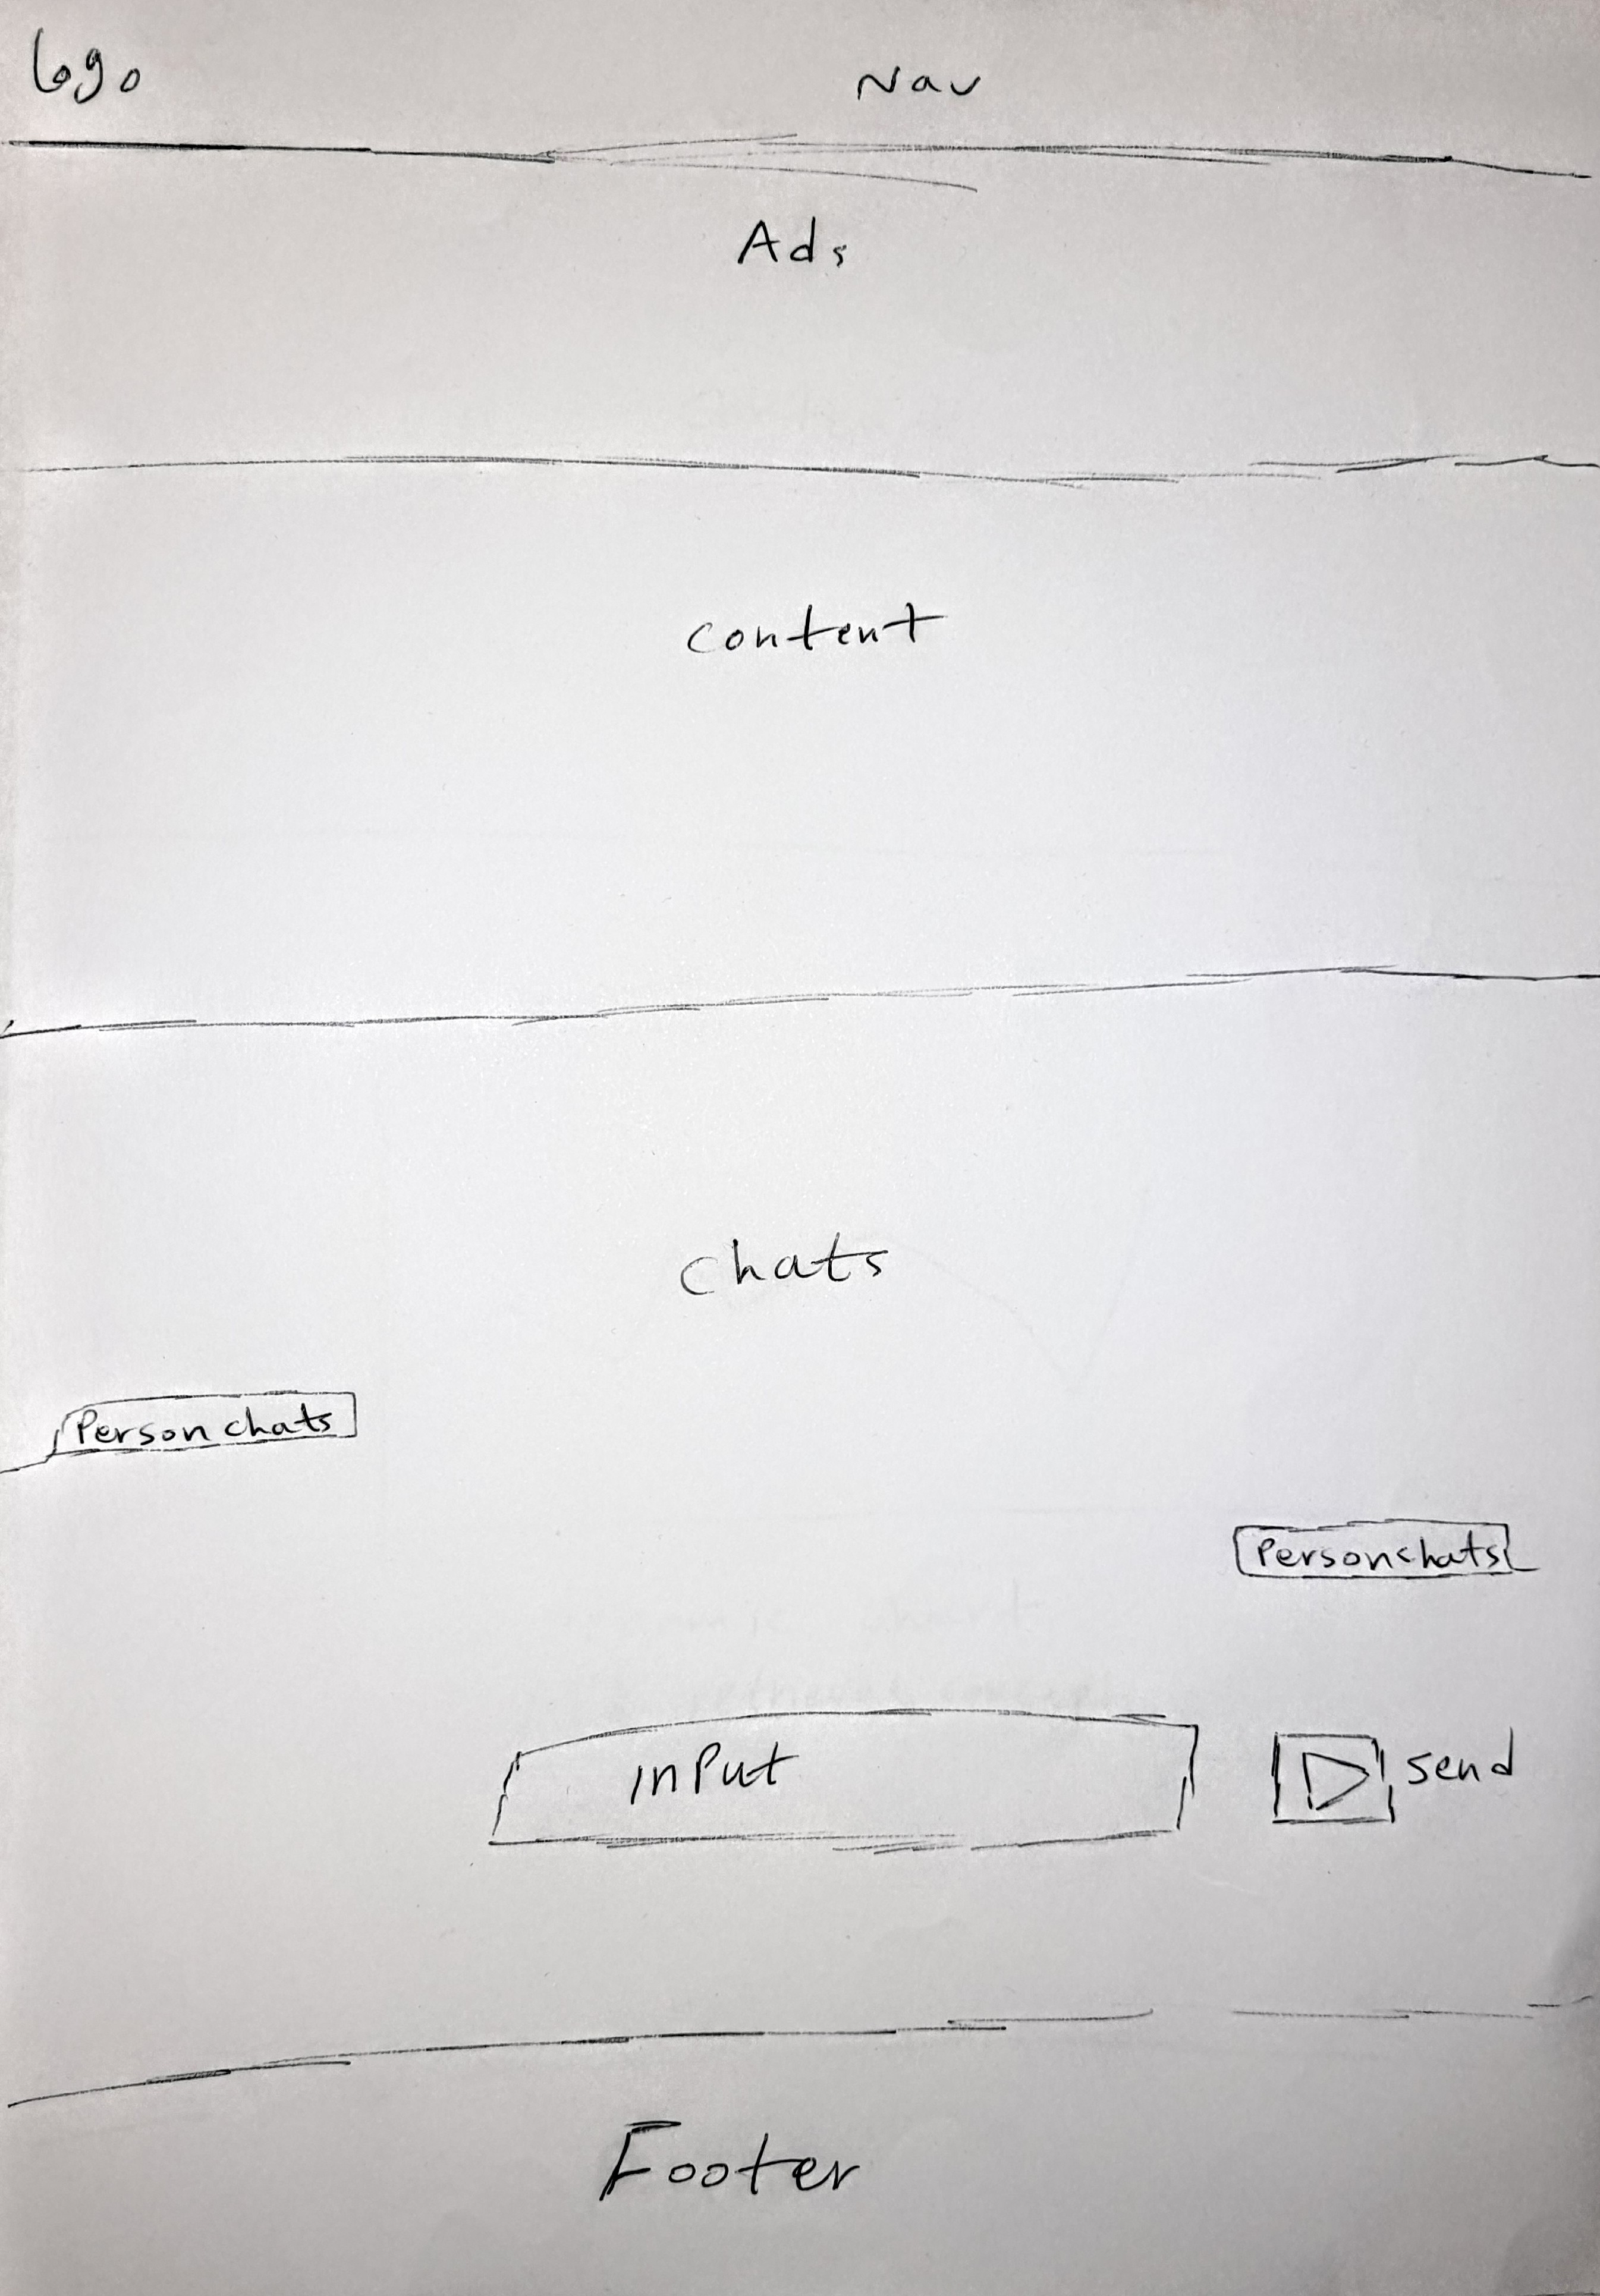 logo Nav
Ads
content
chats
Person chats
Person chats
inPut
send
Footer